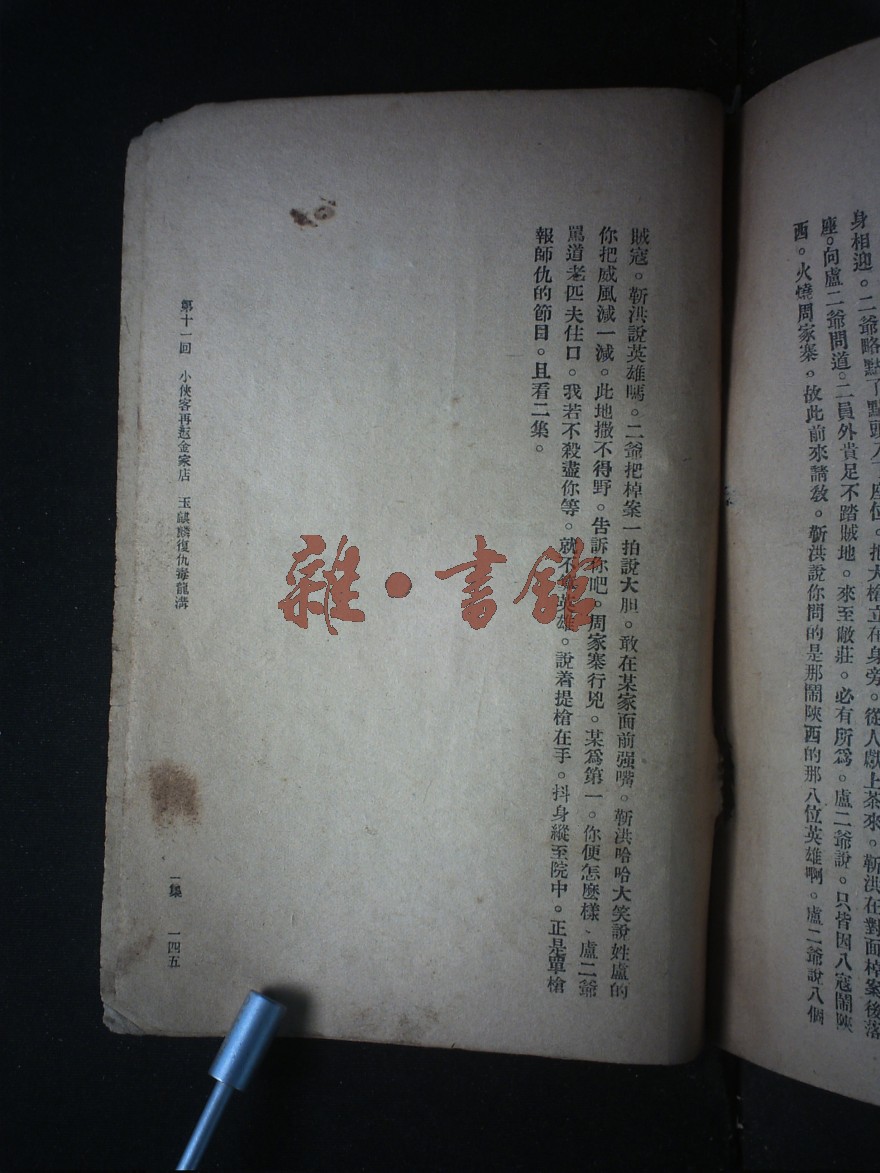 身相迎。二爺略點了點頭入了座位。把大槍立在身旁。從人獻上茶來。靳洪在對面棹案後落
座。向盧二爺問道。二員外貴足不踏賊地。來至敝莊。必有所爲。盧二爺說。只皆因八寇鬧陝
西。火燒周家寨。故此前來請敎。靳洪說你問的是那鬧陝西的那八位英雄啊。盧二爺說八個
賊寇。靳洪說英雄嗎。二爺把棹案一拍說大胆。敢在某家面前强嘴。靳洪哈哈大笑說姓盧的
你把威風减一减。此地撒不得野。告訴你吧。周家寨行兇。某爲第一。你便怎麽樣、盧二爺
罵道老匹夫住口。我若不殺盡你等。就不算英雄。說着提槍在手。抖身縱至院中。正是單槍
報師仇的節目。且看二集。
第十一回 小俠客再返金家店 玉麒麟復仇毒龍溝
一集 一四五
雜·書館